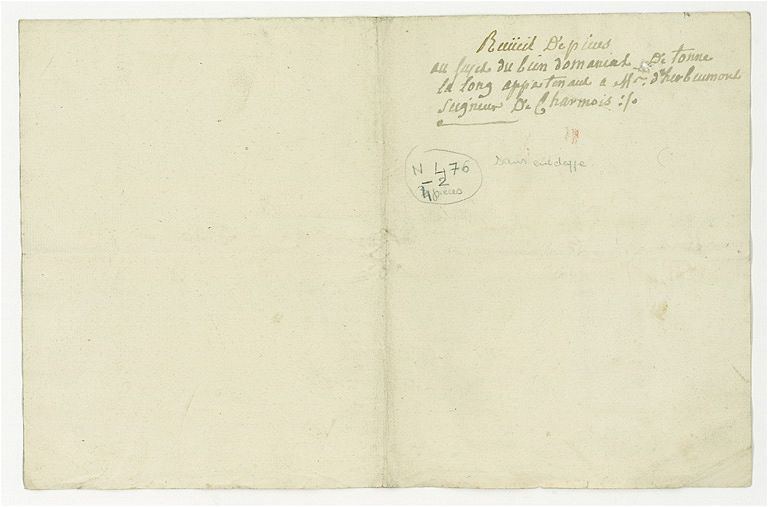 Recüeil De pieces
au sujet du bien domanial De tonne
la long appartenant a Mr. d'herbeumont
Seigneur De Charmois :/.
N 476
2
pieces